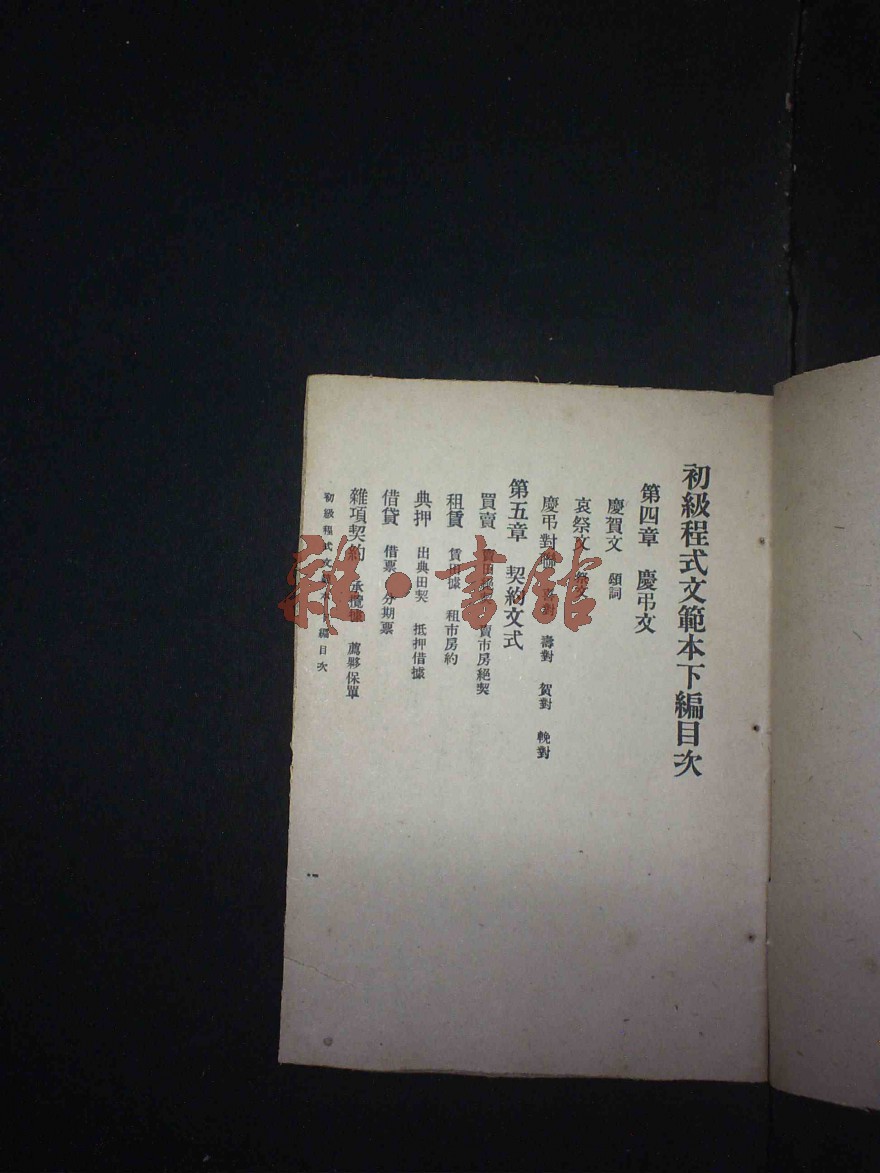 初級程式文範本下編目次
第四章 慶弔文
慶賀文 頌詞
哀祭文 祭文
慶弔對聯 對 壽對 賀對 輓對
第五章 契約文式
買賣 賣田絕契 賣市房絕契
租賃 賃田據 租市房約
典押 出典田契 抵押借據
借貸 借票 分期票
雜項契約 承攬據 薦夥保單
初級程式文範本 編目次
一
雜·書館